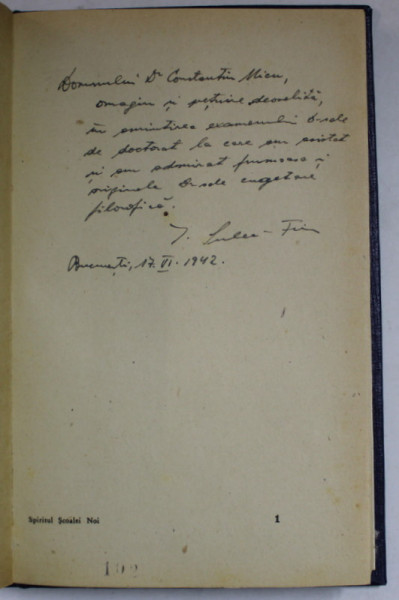 Domnului Dr Constantin Micu,
omagiu și prețuire deosebită,
în amintirea examenului D-sale
de doctorat la care am asistat
și am admirat frumoasa și
originala D-sale cugetare
filosofică.
București, 17.VI.1942.
Spiritul Școalei Noi
1
192